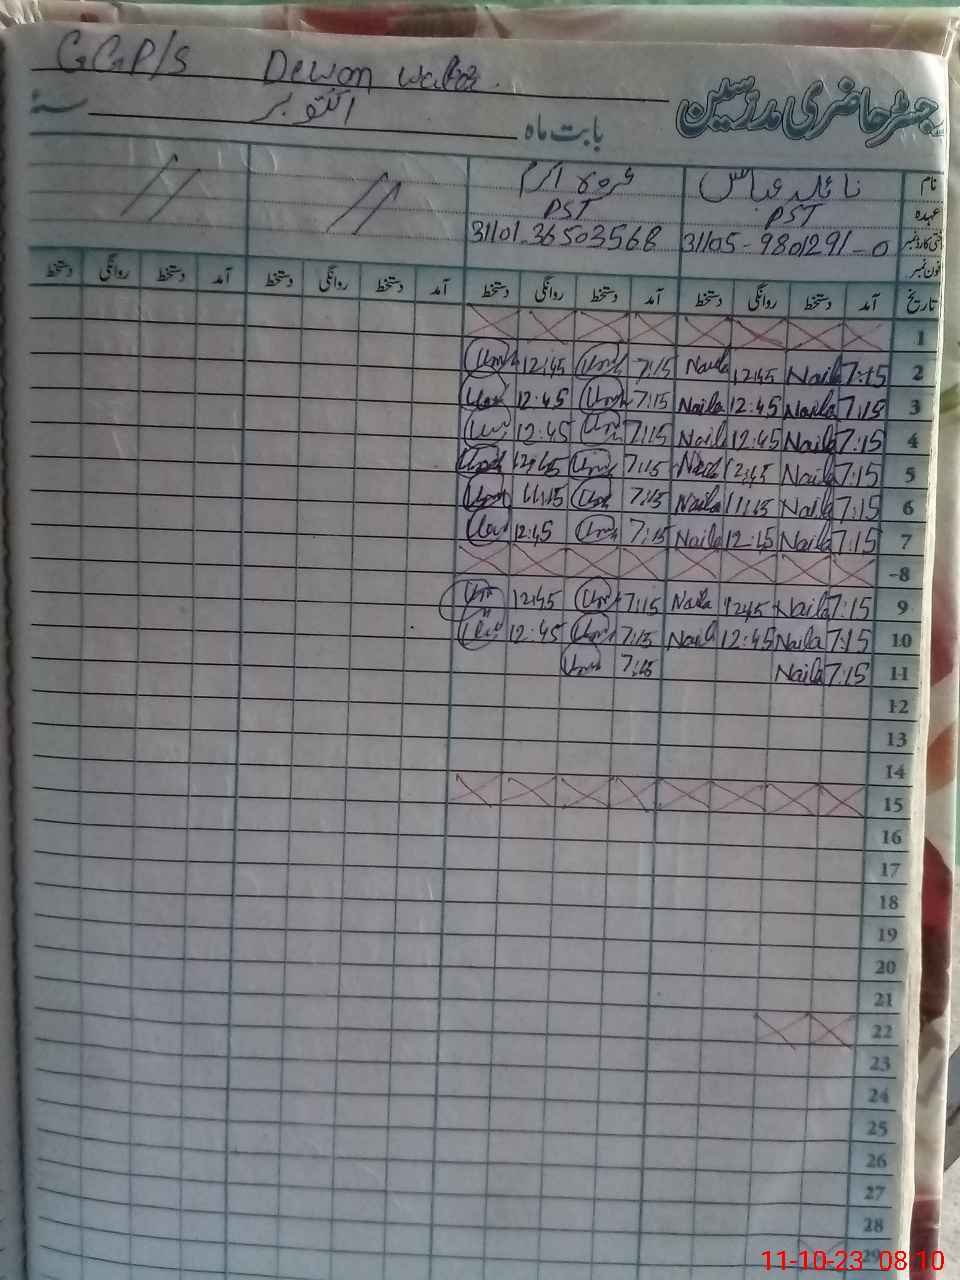 G.G.P/S Dewan
رجسٹر حاضری مدرسین
بابت ماہ اکتوبر سنہ
نام نائلہ عباس اکرم // //
عہدہ PST PST
شناختی کارڈ نمبر 31105-9801291-0 31101-36503568
فون نمبر
تاریخ آمد دستخط روانگی دستخط آمد دستخط روانگی دستخط آمد دستخط روانگی دستخط آمد دستخط روانگی دستخط
1
2 7:15 Naila 12:45 Naila 7:15 12:45
3 7:15 Naila 12:45 Naila 7:15 12:45
4 7:15 Naila 12:45 Naila 7:15 12:45
5 7:15 Naila 12:45 Naila 7:15 12:45
6 7:15 Naila 11:15 Naila 7:15 11:15
7 7:15 Naila 12:45 Naila 7:15 12:45
8
9 7:15 Naila 12:45 Naila 7:15 12:45
10 7:15 Naila 12:45 Naila 7:15 12:45
11 7:15 Naila 7:15
12
13
14
15
16
17
18
19
20
21
22
23
24
25
26
27
28
29
11-10-23 08:10